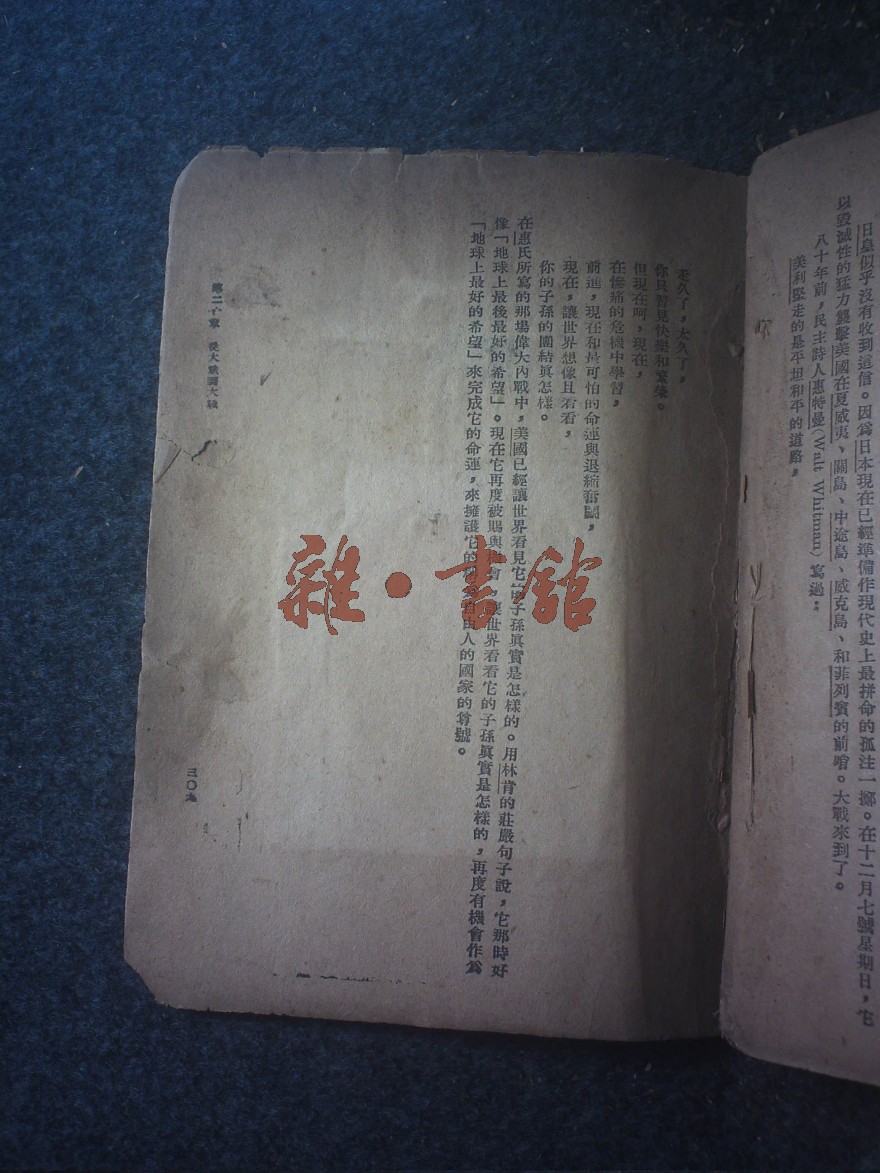 日皇似乎沒有收到這信。因爲日本現在已經準備作現代史上最拼命的孤注一擲。在十二月七號星期日，它
以毀滅性的猛力襲擊美國在夏威夷、關島、中途島、威克島、和菲列賓的前哨。大戰來到了。
八十年前，民主詩人惠特曼(Walt Whitman)寫過：
美利堅走的是平坦和平的道路，
走久了，太久了，
你只習見快樂和繁榮。
但現在呵，現在，
在慘痛的危機中學習，
前進，現在和最可怕的命運與退縮奮鬭，
現在，讓世界想像且看看，
你的子孫的團結眞怎樣。
在惠氏所寫的那場偉大內戰中，美國已經讓世界看見它的子孫眞實是怎樣的。用林肯的莊嚴句子說，它那時好
像「地球上最後最好的希望」。現在它再度被賜與機會，讓世界看看它的子孫眞實是怎樣的，再度有機會作爲
「地球上最好的希望」來完成它的命運，來擁護它的 自由人的國家的尊號。
第二十章 從大戰到大戰
三〇九
雜·書館